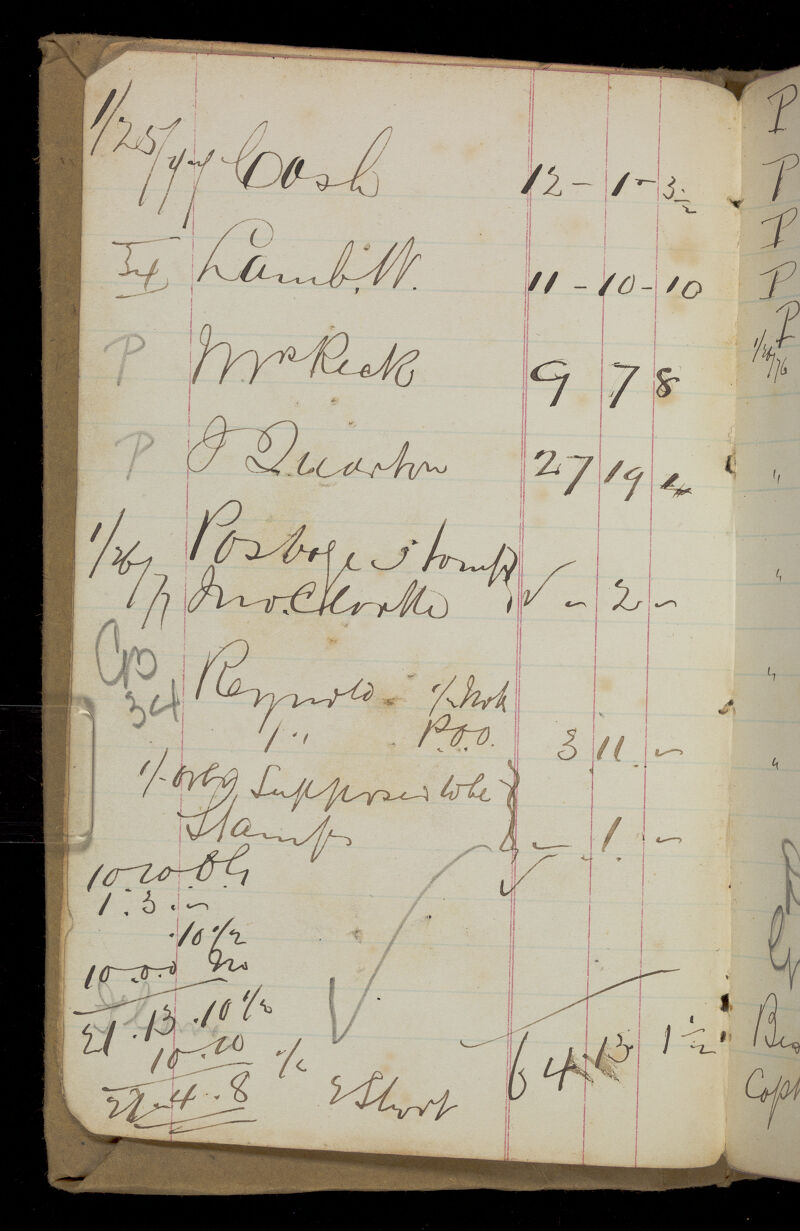 1/25/77 Cash 12 - 1 - 3½
34 Lamb. W. 11 - 10 - 10
P Wm Reck 9 7 8
P J Quarton 27 19 4
1/26/77 Postage Stamps
Jno. Clarke √ - 2 -
Co 34 Reynold
P.O.O. 3 11 -
Supposed to be
Stamps - 1 -
10 10 0
1 . 3 . -
. 10 ½
10 . 0 . 0 No
21 . 13 . 10 ½
10 . 10
21 . 4 . 8
Short
64 13 1½
P
P
P
P
P
1/26/76
"
"
"
"